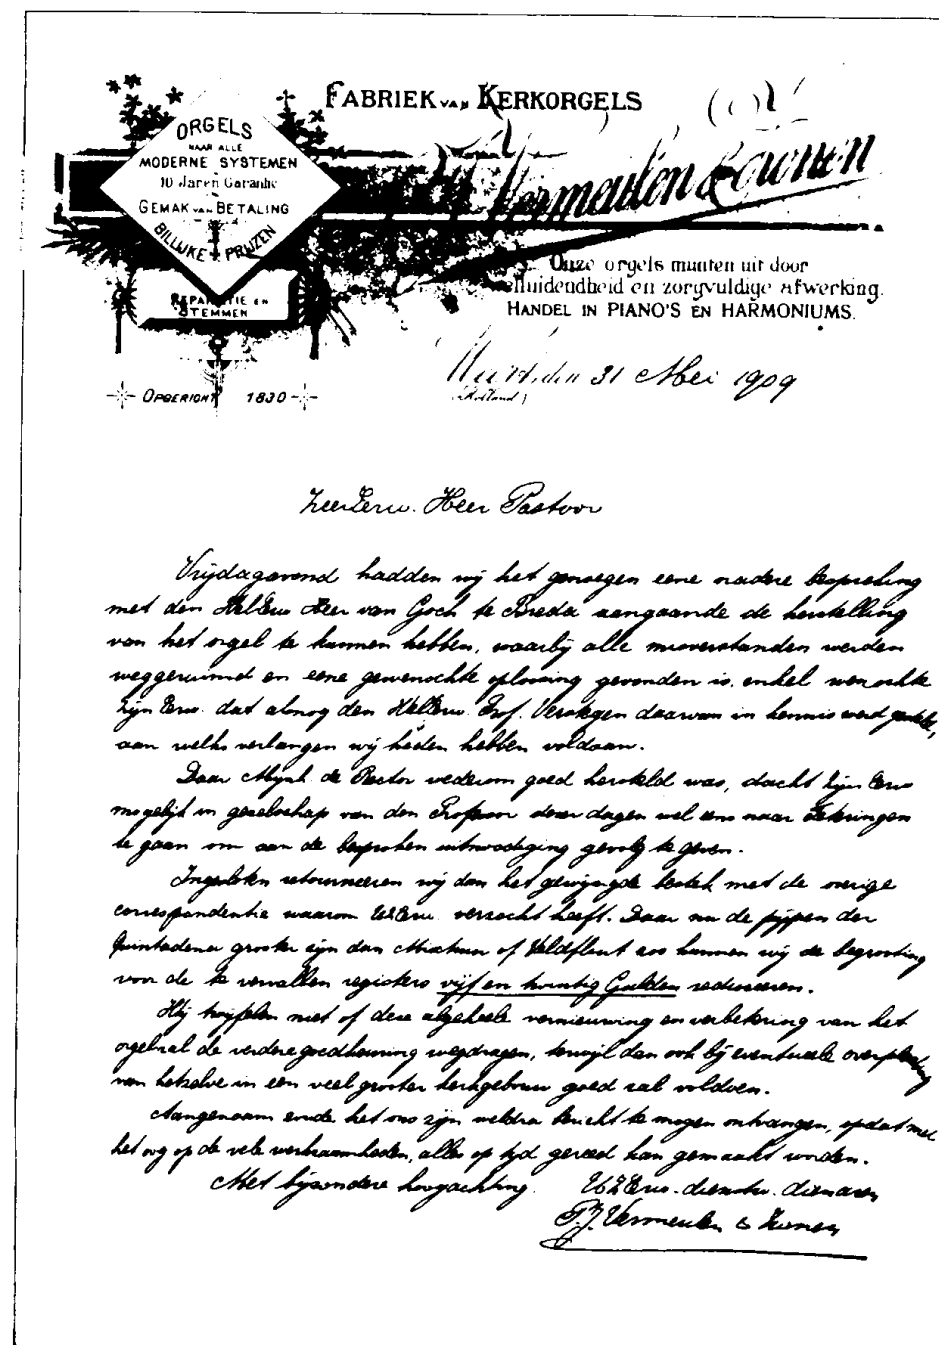 FABRIEK VAN KERKORGELS
ORGELS
NAAR ALLE
MODERNE SYSTEMEN
10 Jaren Garantie
GEMAK VAN BETALING
BILLIJKE PRIJZEN
Vermeulen & Zonen
REPARATIE EN
STEMMEN
Onze orgels munten uit door
welluidendheid en zorgvuldige afwerking.
HANDEL IN PIANO'S EN HARMONIUMS.
OPGERICHT 1830
Weert, den 31 Mei 1909
(Holland)
ZeerEerw. Heer Pastoor
Vrijdagavond hadden wij het genoegen eene nadere bespreking
met den HelEerw Heer van Goch te Breda aangaande de herstelling
van het orgel te kunnen hebben, waarbij alle misverstanden werden
weggeruimd en eene gewenschte oplossing gevonden is, enkel wenschte
Zijn Eerw. dat alsnog den HelEerw. Prof. Verskegen daarvan in kennis werd gesteld,
aan welks verlangen wij heden hebben voldaan.
Daar Mijnh. de Rector wederom goed hersteld was, dacht Zijn Eerw
mogelijk in gezelschap van den Professor dezer dagen wel eens naar
te gaan om aan de besproken uitnoodiging gevolg te geven.
Ingesloten retourneeren wij dan het gewijzigde bestek met de overige
correspondentie waarom verzocht heeft. Daar nu de pijpen der
Quintadena grooter zijn dan Mixtuur of Veldfluit zoo kunnen wij de begrooting
voor de te vervallen registers vijf en twintig Gulden reduceeren.
Wij twijfelen niet of deze algeheele vernieuwing en verbetering van het
orgel zal de verdere goedkeuring wegdragen, terwijl dan ook bij eventueele overplaatsing
van hetzelve in een veel grooter kerkgebouw goed zal voldoen.
Aangenaam zoude het ons zijn weldra bericht te mogen ontvangen, opdat met
het oog op de vele werkzaamheden, alles op tijd gereed kan gemaakt worden.
Met bijzondere hoogachting. UZEerw. dienstw. dienaren
P.J. Vermeulen & Zonen